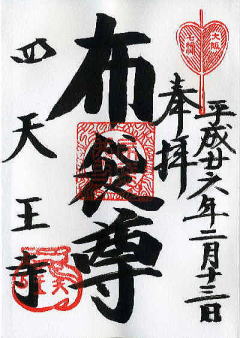 大阪
七福
奉拝
平成廿六年二月十三日
布袋尊
四天王寺